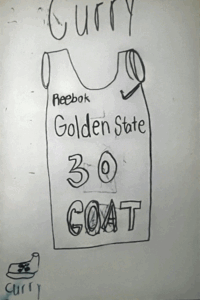 Curry
Reebok
Golden State
30
GOAT
Curry